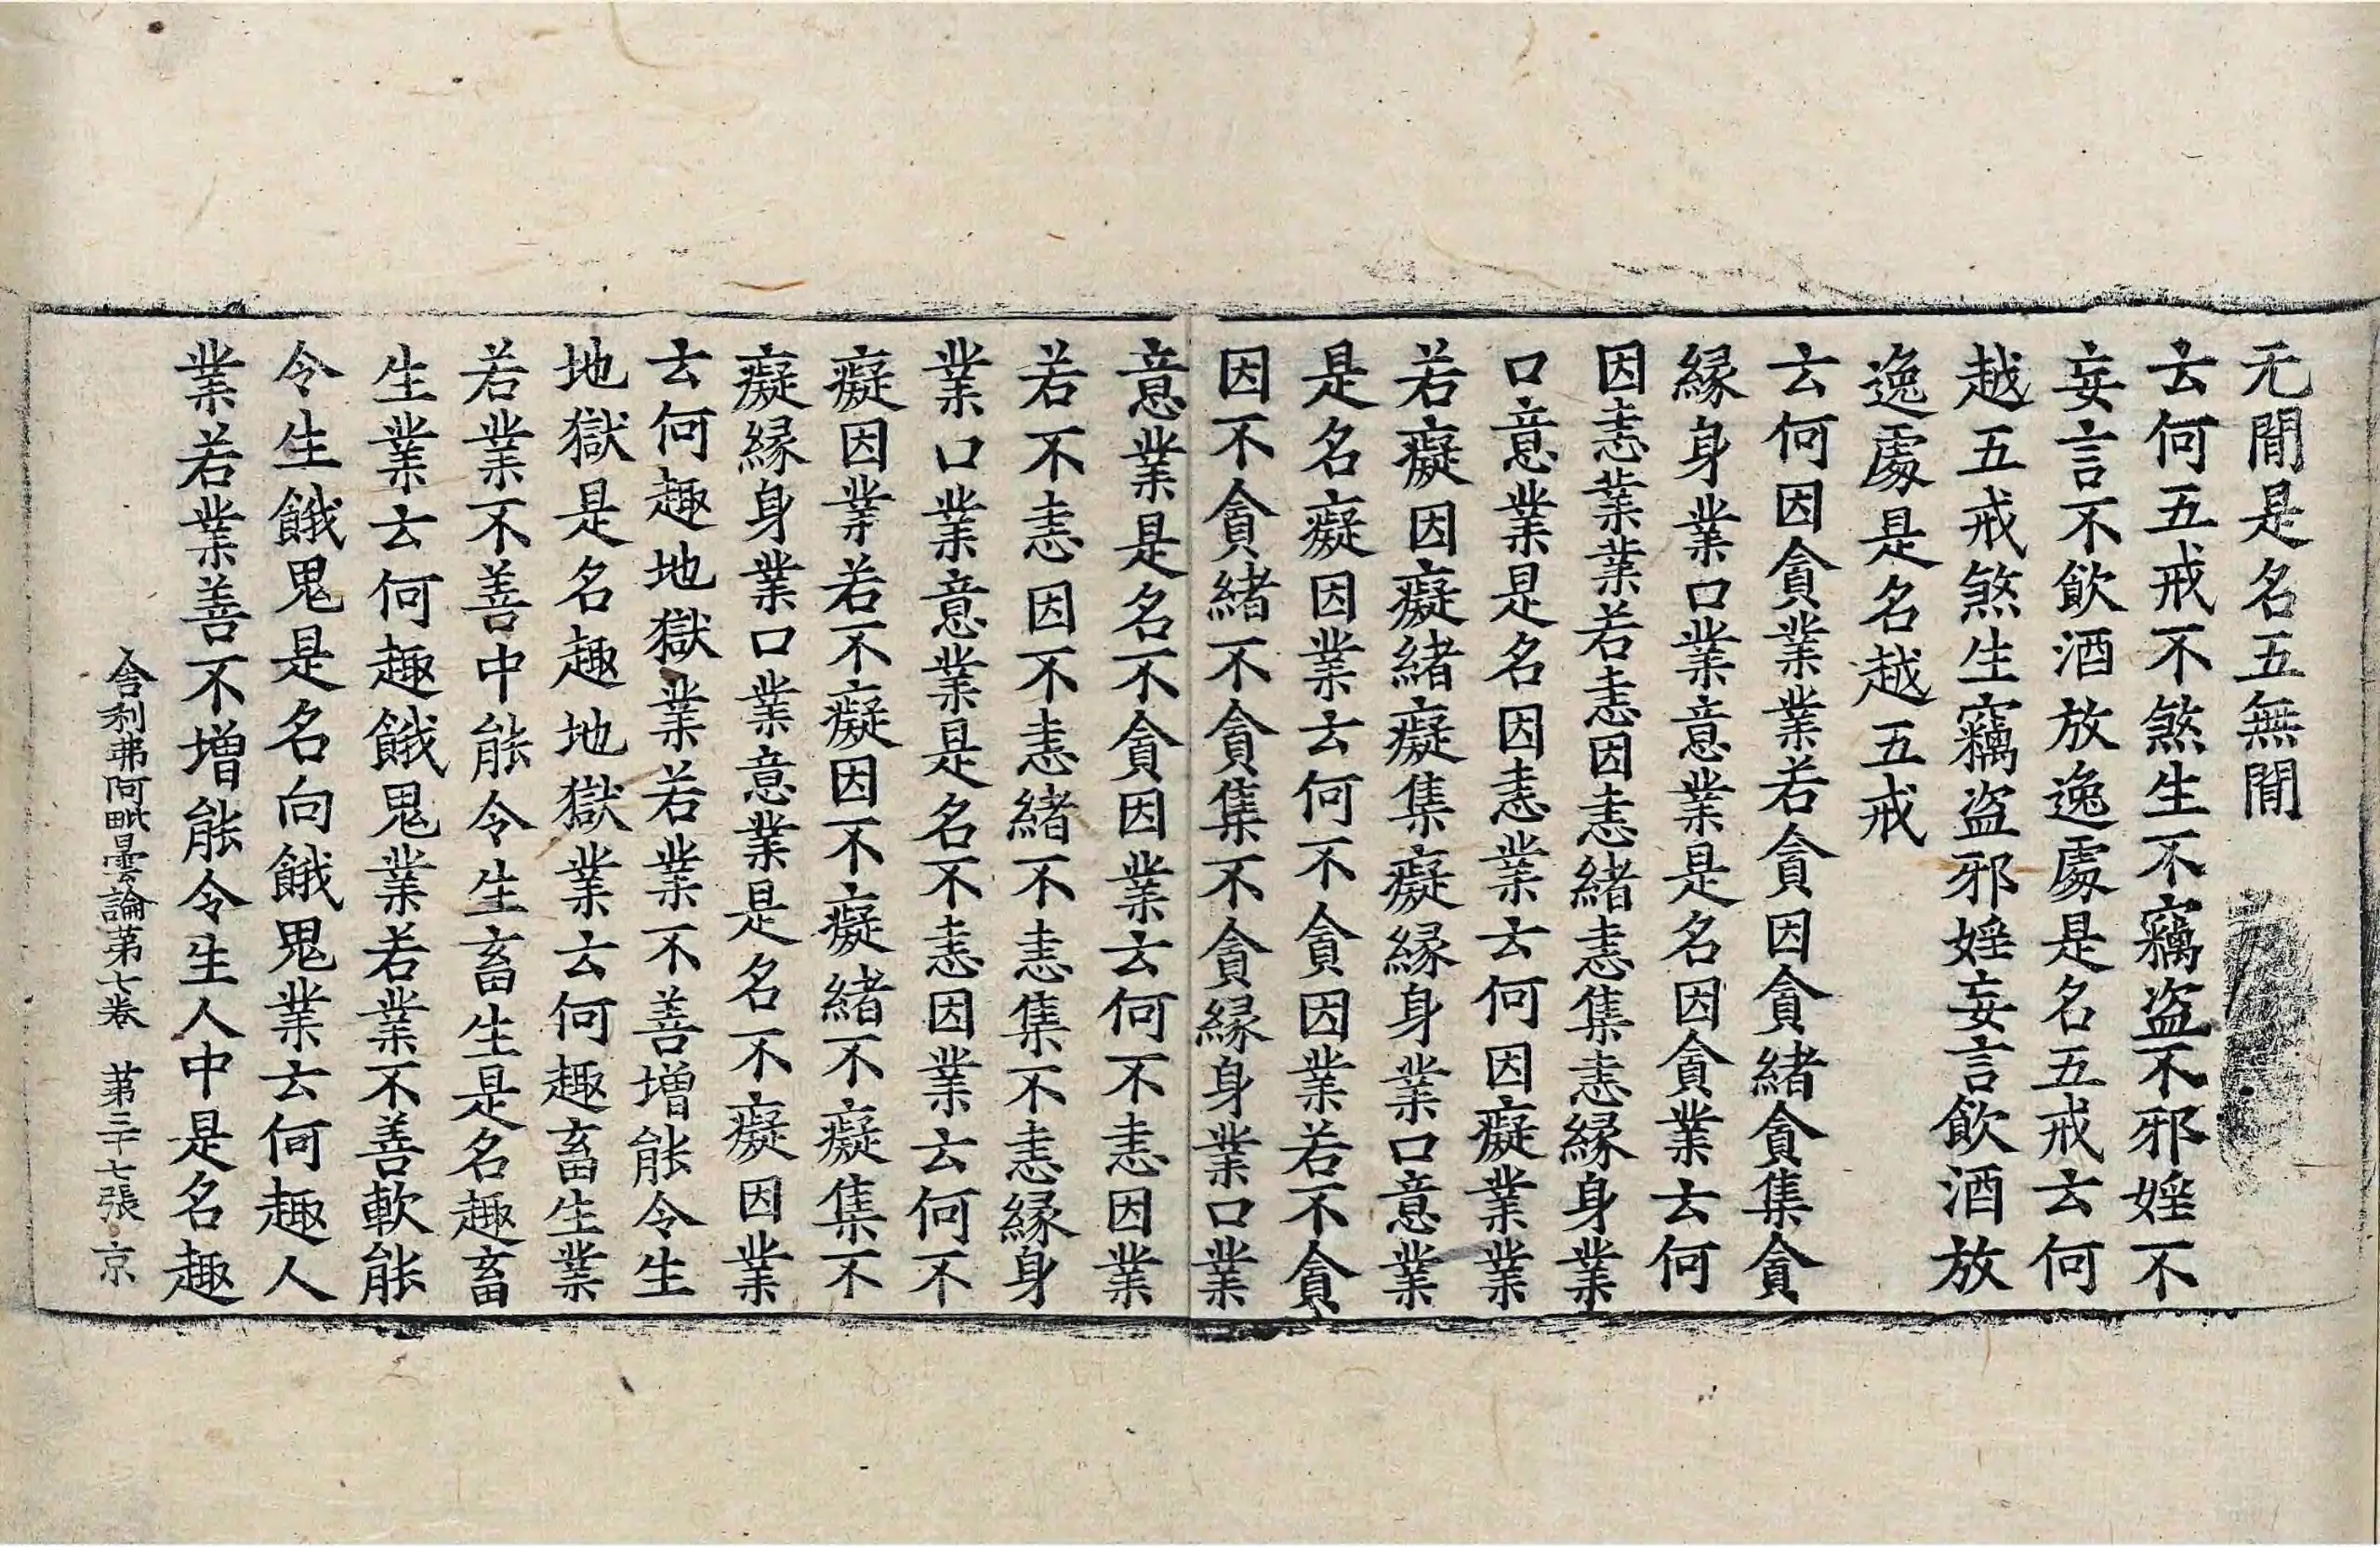 无閒是名五無閒
云何五戒不煞生不竊盜不邪婬不
妄言不飲酒放逸處是名五戒云何
越五戒煞生竊盜邪婬妄言飲酒放
逸處是名越五戒
云何因貪業若貪因貪緒貪集貪
緣身業口業意業是名因貪業云何
因恚業業若恚因恚緒恚集恚緣身業
口意業是名因恚業云何因癡業業
若癡因癡緒癡集癡緣身業口意業
是名癡因業云何不貪因業若不貪
因不貪緒不貪集不貪緣身業口業
意業是名不貪因業云何不恚因業
若不恚因不恚緒不恚集不恚緣身
業口業意業是名不恚因業云何不
癡因業若不癡因不癡緒不癡集不
癡緣身業口業意業是名不癡因業
云何趣地獄業若業不善增能令生
地獄是名趣地獄業云何趣畜生業
若業不善中能令生畜生是名趣畜
生業云何趣餓鬼業若業不善軟能
令生餓鬼是名向餓鬼業云何趣人
業若業善不增能令生人中是名趣
舍利弗阿毗曇論第七卷 第三十七張 京